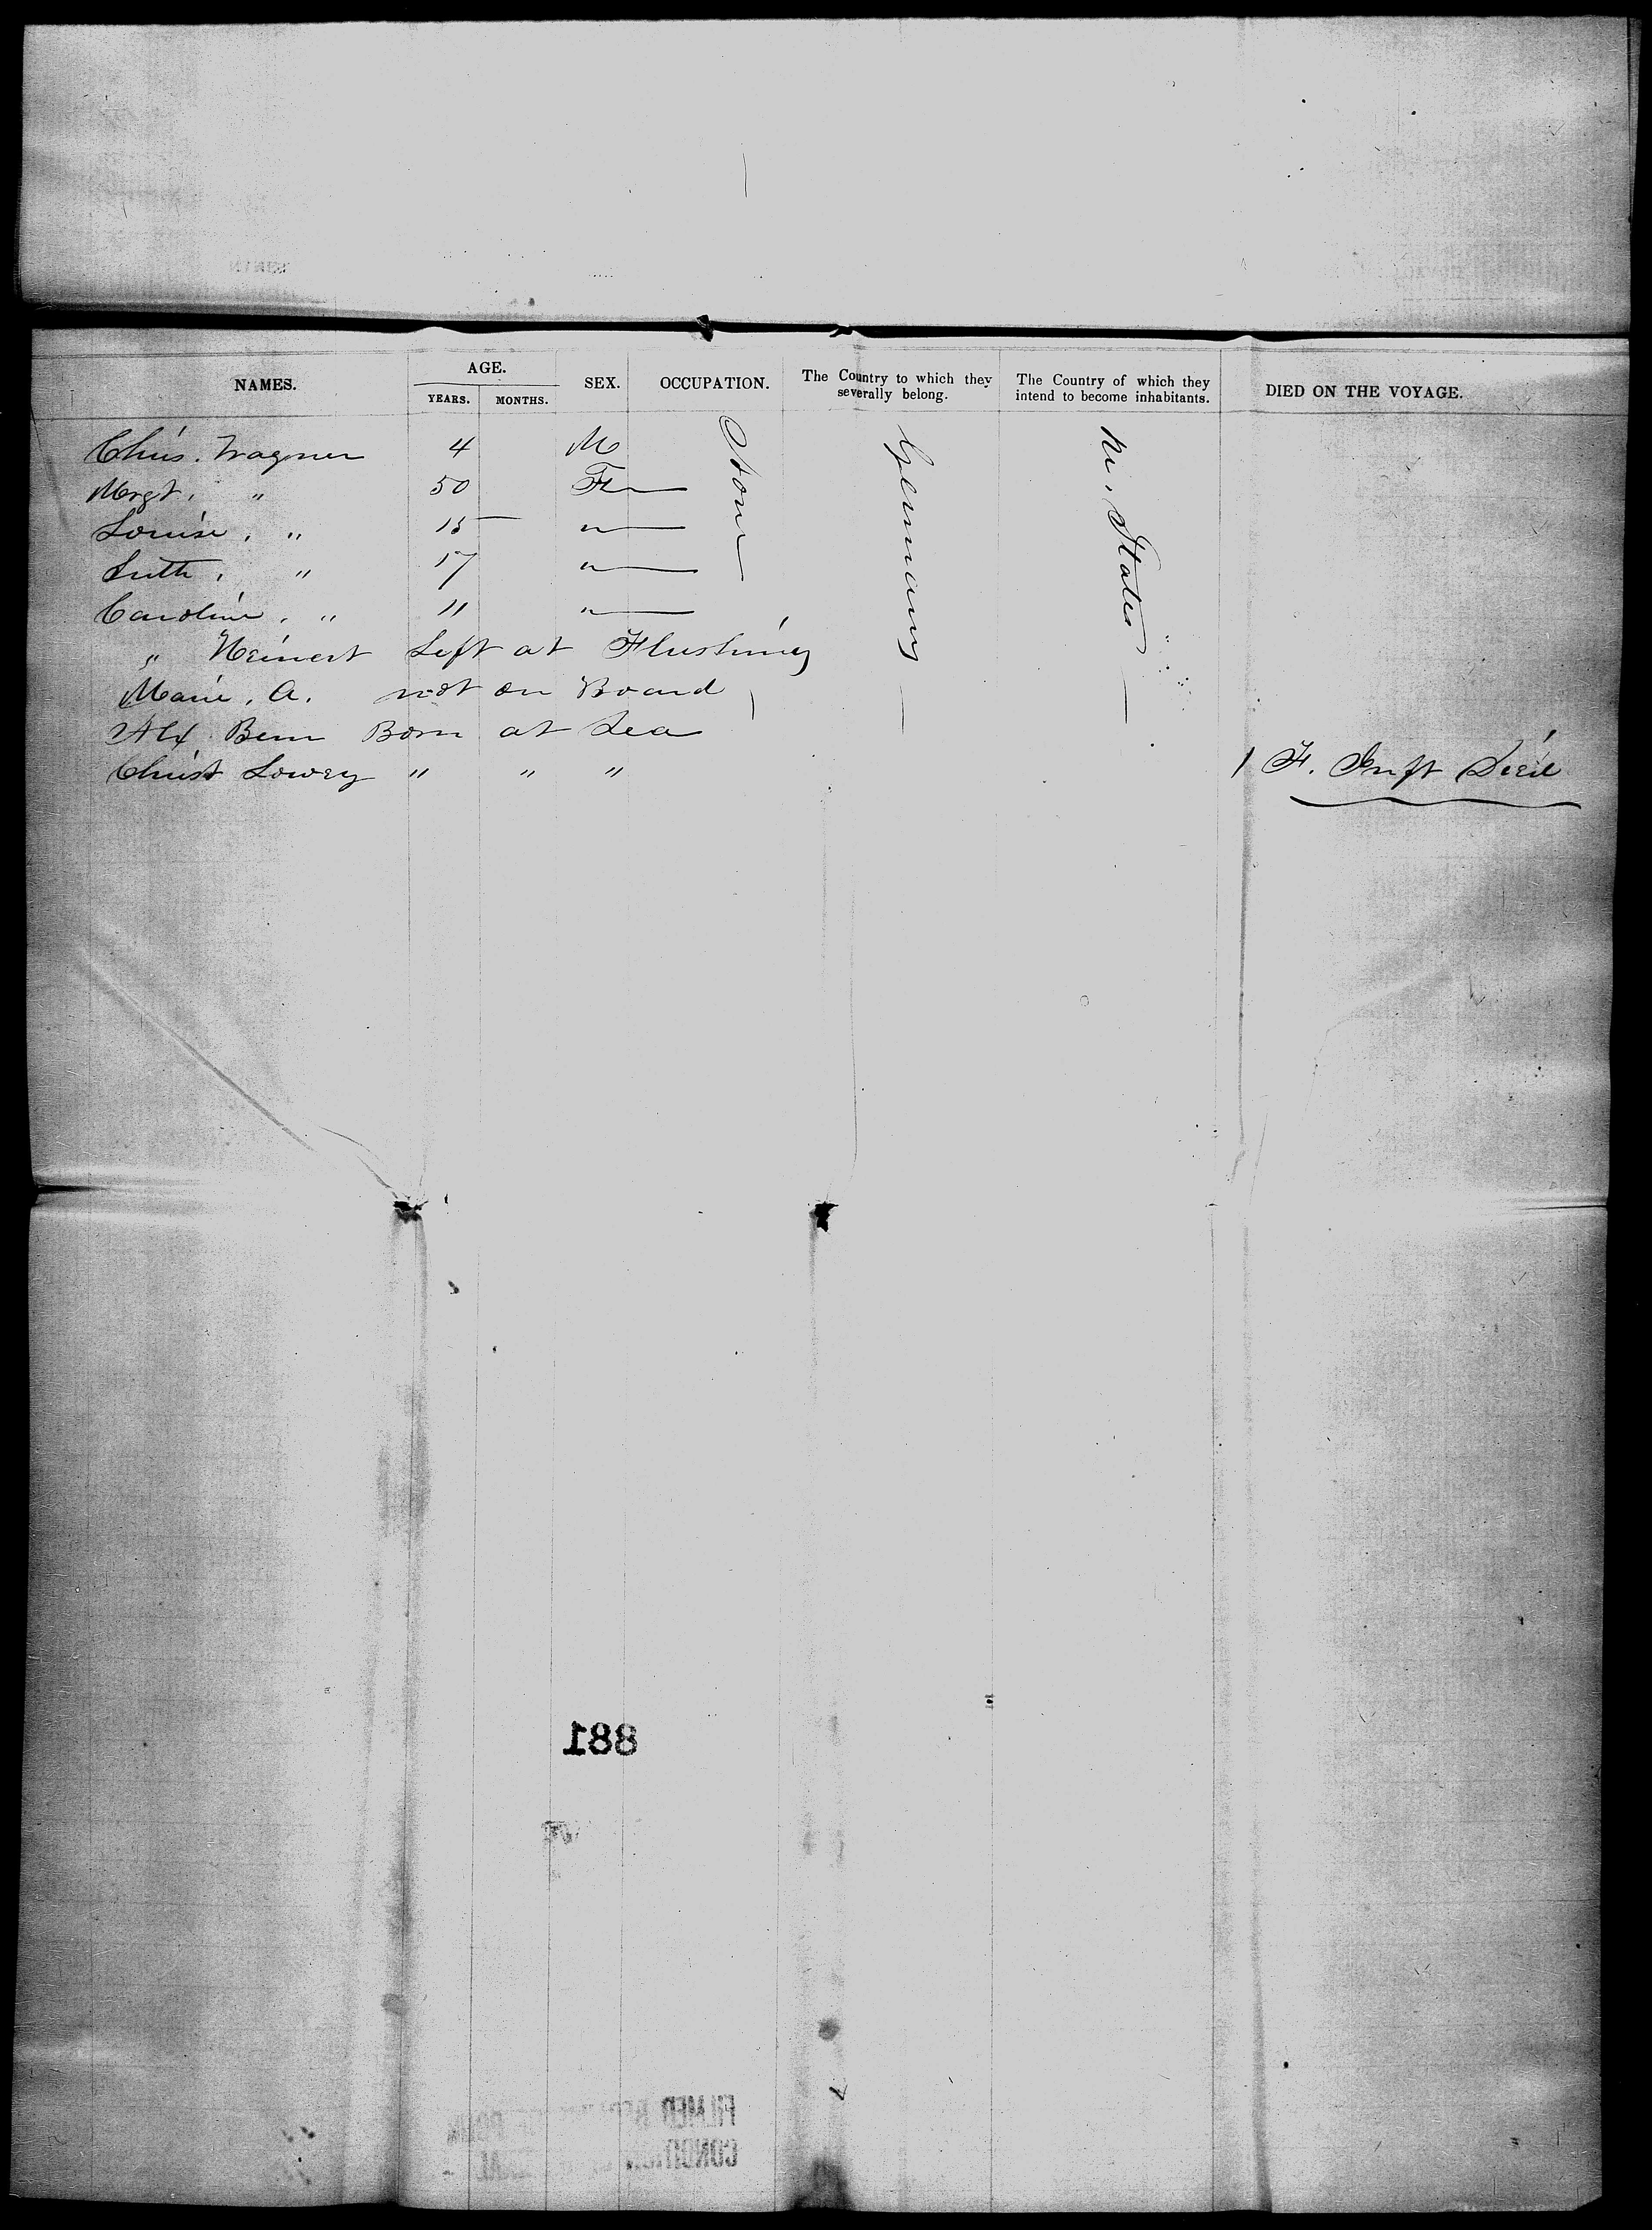 NAMES. AGE. YEARS. MONTHS. SEX. OCCUPATION. The Country to which they severally belong. The Country of which they intend to become inhabitants. DIED ON THE VOYAGE.
Chris. Wagner 4 M
Mrgt. " 50 F
Louise. " 15 "
" 17 "
Caroline. " 11 "
" Heinert Left at Flushing
Marie. A. not on Board
Alx Bem Born at Sea
Christ Lowry " " " 1 F. Inft Died
None
Germany
States
188
FILMED
CONDITION